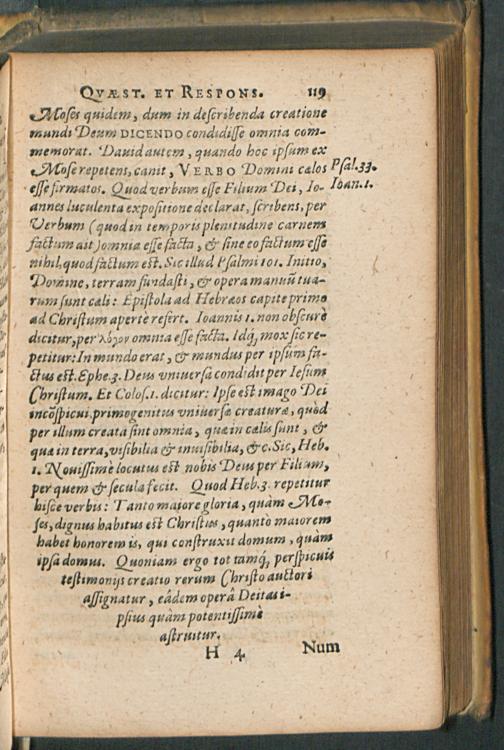 QVÆST. ET RESPONS. 119
Moses quidem, dum in describenda creatione
mundi Deum DICENDO condidisse omnia com-
memorat. Dauid autem, quando hoc ipsum ex
Mose repetens, canit, VERBO Domini cælos
Psal. 33.
esse firmatos. Quod verbum esse Filium Dei, Io-
Ioan. 1.
annes luculenta expositione declarat, scribens, per
Verbum (quod in temporis plenitudine carnem
factum ait) omnia esse facta, & sine eo factum esse
nihil, quod factum est. Sic illud Psalmi 101. Initio,
Domine, terram fundasti, & opera manuũ tua-
rum sunt cæli: Epistola ad Hebræos capite primo
ad Christum apertè refert. Ioannis 1. non obscurè
dicitur, per λόγον omnia esse facta. Idq́, mox sic re-
petitur: In mundo erat, & mundus per ipsum fa-
ctus est. Ephe. 3. Deus vniuersa condidit per Iesum
Christum. Et Colos. 1. dicitur: Ipse est imago Dei
incõspicui, primogenitus vniuersæ creaturæ, quòd
per illum creata sint omnia, quæ in cælis sunt, &
quæ in terra, visibilia & inuisibilia, &c. Sic, Heb.
1. Nouissimè locutus est nobis Deus per Filium,
per quem & secula fecit. Quod Heb. 3. repetitur
hisce verbis: Tanto maiore gloria, quàm Mo-
ses, dignus habitus est Christus, quanto maiorem
habet honorem is, qui construxit domum, quàm
ipsa domus. Quoniam ergo tot tamq́, perspicuis
testimonijs creatio rerum Christo auctori
assignatur, eâdem operâ Deitas i-
psius quàm potentissimè
astruitur.
H 4 Num